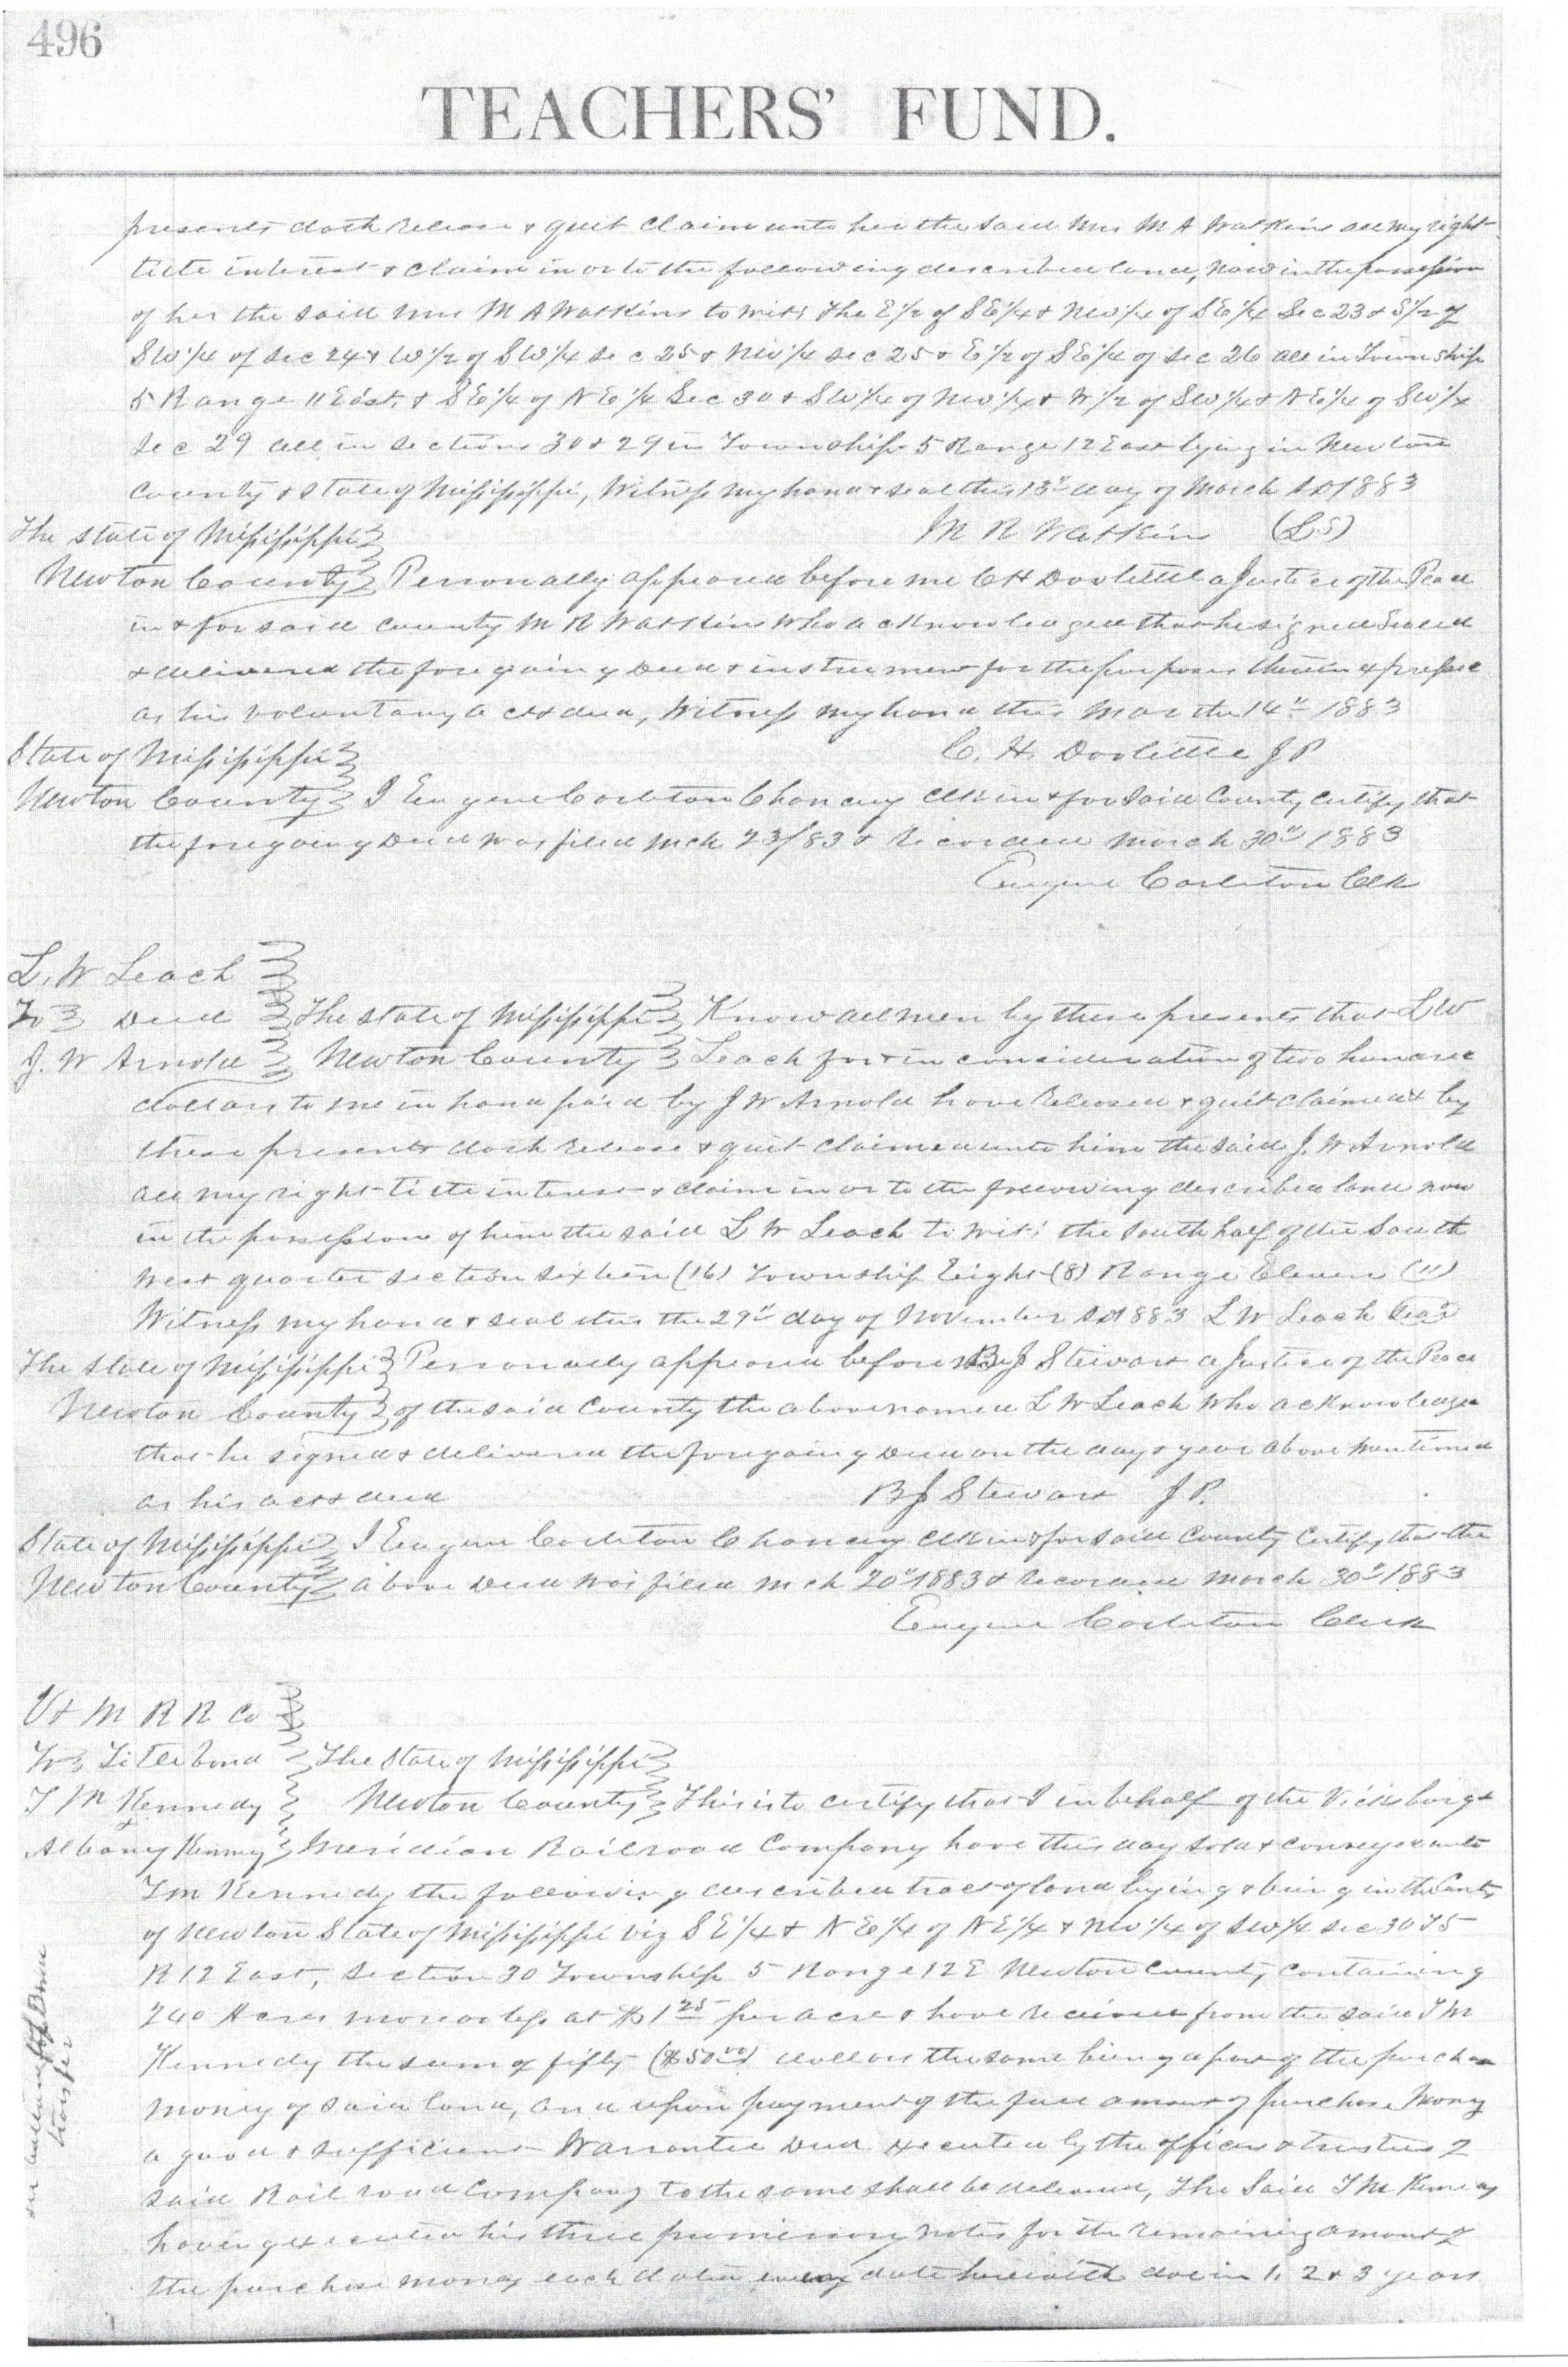 496
TEACHERS' FUND.
presents doth release & quit claim unto her the said Mrs M A Watkins all my right
title interest & claim in or to the following described land, now in the possession
of her the said Mrs M A Watkins to wit; The E 1/2 of SE 1/4 & NW 1/4 of SE 1/4 Sec 23 & S 1/2 of
SW 1/4 of Sec 24 & W 1/2 of SW 1/4 Sec 25 & NW 1/4 Sec 25 & E 1/2 of SE 1/4 of Sec 26 all in Township
5 Range 11 East, & SE 1/4 of NE 1/4 Sec 30 & SW 1/4 of NW 1/4 & W 1/2 of SW 1/4 & NE 1/4 of SW 1/4
Sec 29 all in sections 30 & 29 in Township 5 Range 12 East lying in Newton
County & State of Mississippi, Witness my hand & seal this 13" day of March AD 1883
M R Watkins (LS)
The State of Mississippi
Newton County Personally appeared before me C H Doolittle a Justice of the Peace
in & for said county M R Watkins who acknowledged that he signed sealed
& delivered the foregoing Deed & instrument for the purposes therein expressed
as his voluntary act & deed, Witness my hand this Mar the 14" 1883
C. H. Doolittle J P
State of Mississippi
Newton County I Eugene Carleton Chancery Clk in & for said County certify that
the foregoing Deed was filed Mch 23/83 & Recorded March 30" 1883
Eugene Carleton Clk
L. W Leach
To Deed The State of Mississippi Know all men by these presents that L W
J. W Arnold Newton County Leach for & in consideration of two hundred
dollars to me in hand paid by J W Arnold have Released & quit claimed & by
these presents doth release & quit claimed unto him the said J. W Arnold
all my right title interest & claim in or to the following described land now
in the possession of him the said L W Leach to wit; the South half of the South
West quarter section sixteen (16) Township Eight (8) Range Eleven (11)
Witness my hand & seal this the 29" day of November AD 1883 L W Leach Seal
The State of Mississippi Personally appeared before B J Stewart a Justice of the Peace
Newton County of the said County the above named L W Leach who acknowledged
that he signed & delivered the foregoing Deed on the day & year above mentioned
as his act & deed B J Stewart J P.
State of Mississippi I Eugene Carleton Chancery Clk in & for said County Certify that the
Newton County above Deed was filed Mch 20" 1883 & Recorded March 30" 1883
Eugene Carleton Clerk
V & M R R Co
To Title bond The State of Mississippi
T M Kennedy Newton County This is to certify that I in behalf of the Vicksburg &
Albany Kenney Meridian Railroad Company have this day sold & conveyed unto
T M Kennedy the following described tract of land lying & being in the County
of Newton State of Mississippi viz SE 1/4 & NE 1/4 of NE 1/4 & NW 1/4 of SW 1/4 Sec 30 T5
R 12 East, Section 30 Township 5 Range 12 E Newton County containing
240 Acres more or less at $1 25 per acre & have received from the said T M
Kennedy the sum of fifty ($50 00) dollars the same being a part of the purchase
money of said land, and upon payment of the full amount of purchase money
a good & sufficient Warrantee Deed executed by the officers & trustees of
said Rail road Company to the same shall be delivered, The said T M Kennedy
having executed his three promissory notes for the remaining amount of
the purchase money each dated date herewith due in 1, 2 & 3 years
of Bond
transfer